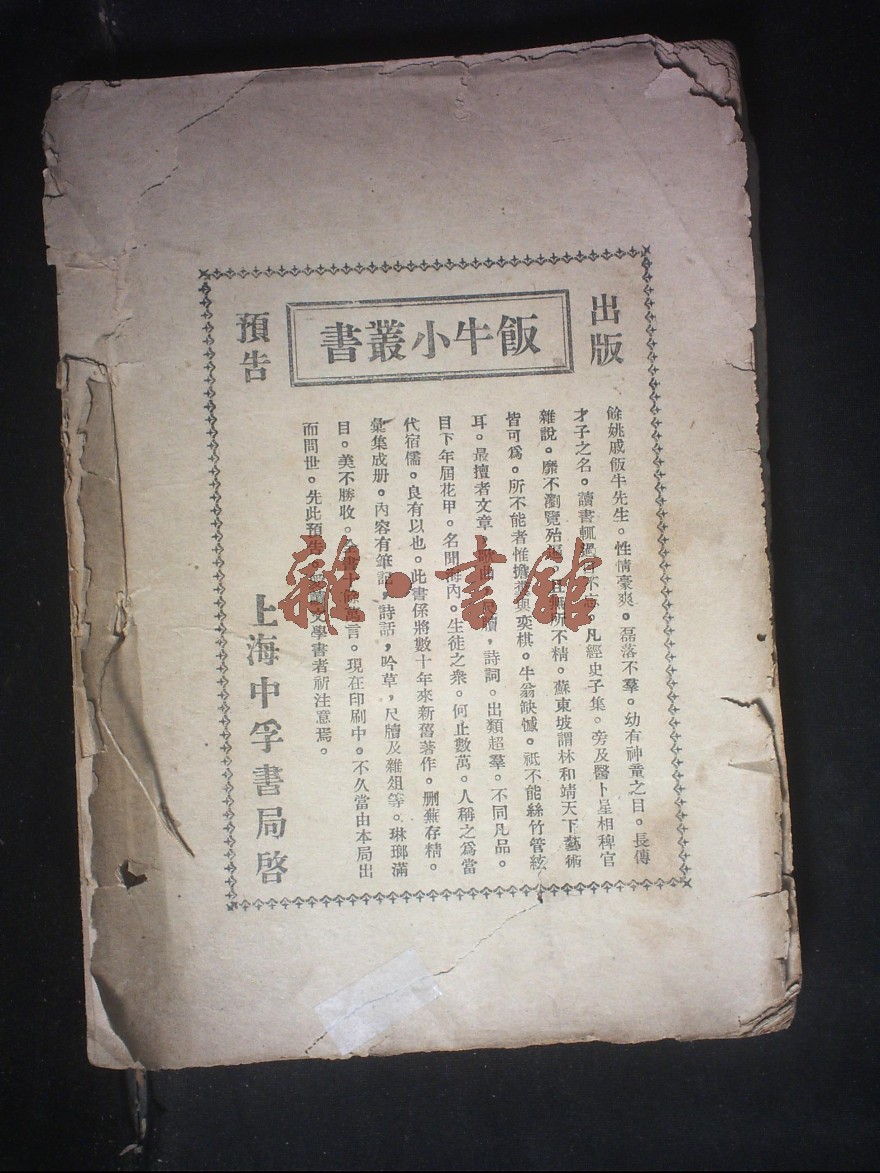 出版
飯牛小叢書
預告
餘姚戚飯牛先生。性情豪爽。磊落不羣。幼有神童之目。長傳
才子之名。讀書輒過不忘。凡經史子集。旁及醫卜星相稗官
雜說。靡不瀏覽殆遍。且無所不精。蘇東坡謂林和靖天下藝術
皆可爲。所不能者惟擔糞與奕棋。牛翁缺憾。祇不能絲竹管絃
耳。最擅者文章，詞曲，尺牘，詩詞。出類超羣。不同凡品。
目下年屆花甲。名聞海內。生徒之衆。何止數萬。人稱之爲當
代宿儒。良有以也。此書係將數十年來新舊著作。删蕪存精。
彙集成册。內容有筆記，詩話，吟草，尺牘及雜俎等。琳瑯滿
目。美不勝收。全書十餘萬言。現在印刷中。不久當由本局出
而問世。先此預告。文學書者祈注意焉。
上海中孚書局啓
雜·書館